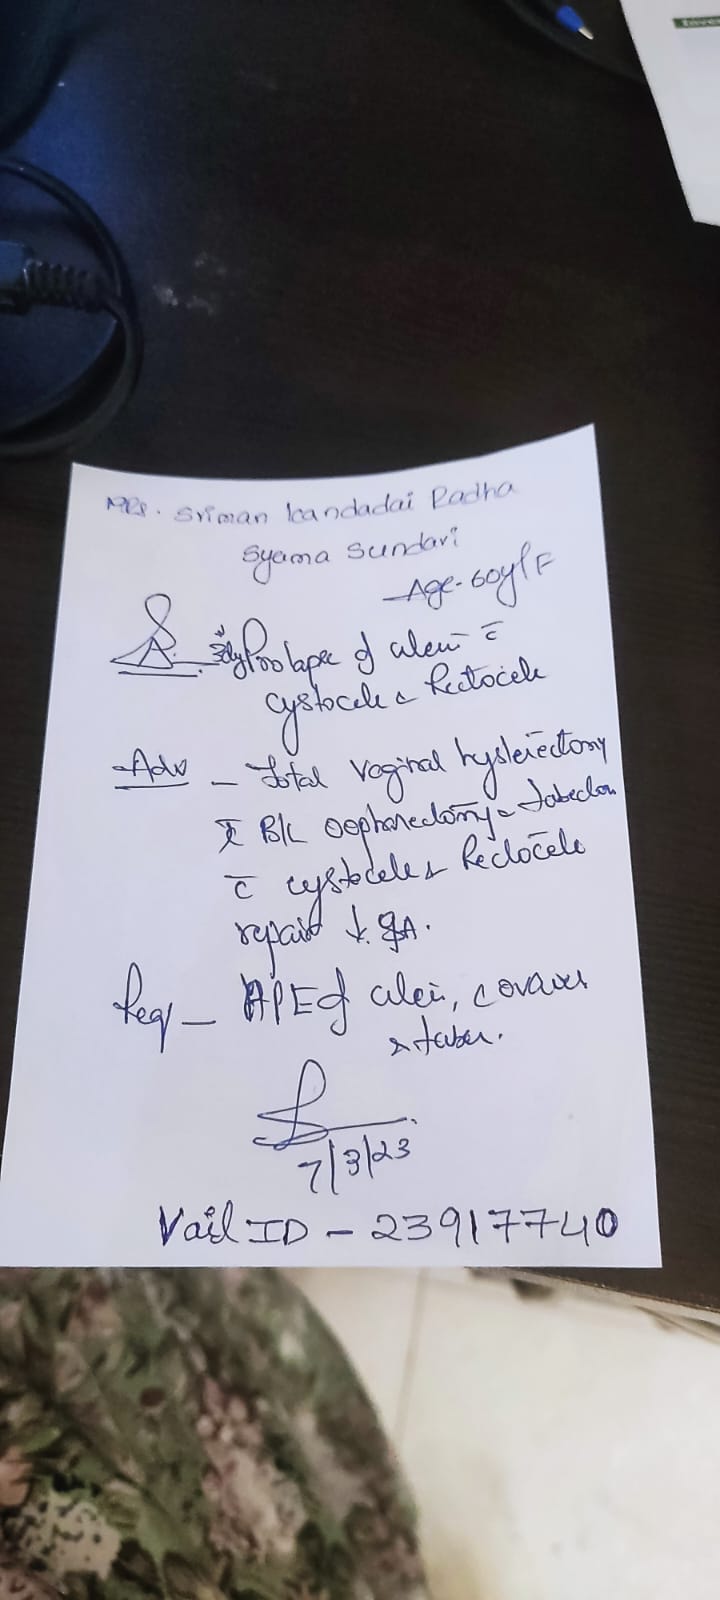 Mrs. Sriman kandadai Radha
Syama Sundari
Age-60y/F
3dy Prolapse of uteri c̄
cystocele & Rectocele
Adv - Total Vaginal hysterectomy
c̄ B/L oophorectomy &
c̄ cystocele & Rectocele
repair ↓. GA.
Req - HPE of uteri, ovaries
& tubes.
7/3/23
Vail ID - 23917740